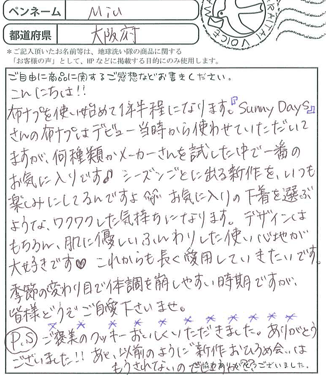 ペンネーム Miu
都道府県 大阪府
＊ご記入頂いたお名前等は、地球洗い隊の商品に関する
「お客様の声」として、HPなどに掲載する目的にのみ使用します。
ご自由に商品に関するご感想などお書きください。
こんにちは!!
布ナプを使い始めて1年半程になります。『Sunny Days』
さんの布ナプはデビュー当時から使わせていただいて
ますが、何種類かメーカーさんを試した中で一番の
お気に入りです♪ シーズンごとに出る新作を、いつも
楽しみにしてるんですよ お気に入りの下着を選ぶ
ような、ワクワクした気持ちになります。デザインは
もちろん、肌に優しいふんわりした使い心地が
大好きです♥ これからも長く愛用していきたいです。
季節の変わり目で体調を崩しやすい時期ですが、
皆様どうぞご自愛下さいませ。
P.S ご褒美のクッキーおいしくいただきました。ありがとう
ございました!! あと、以前のように『新作おひろめ会』は
もうされてないのですか